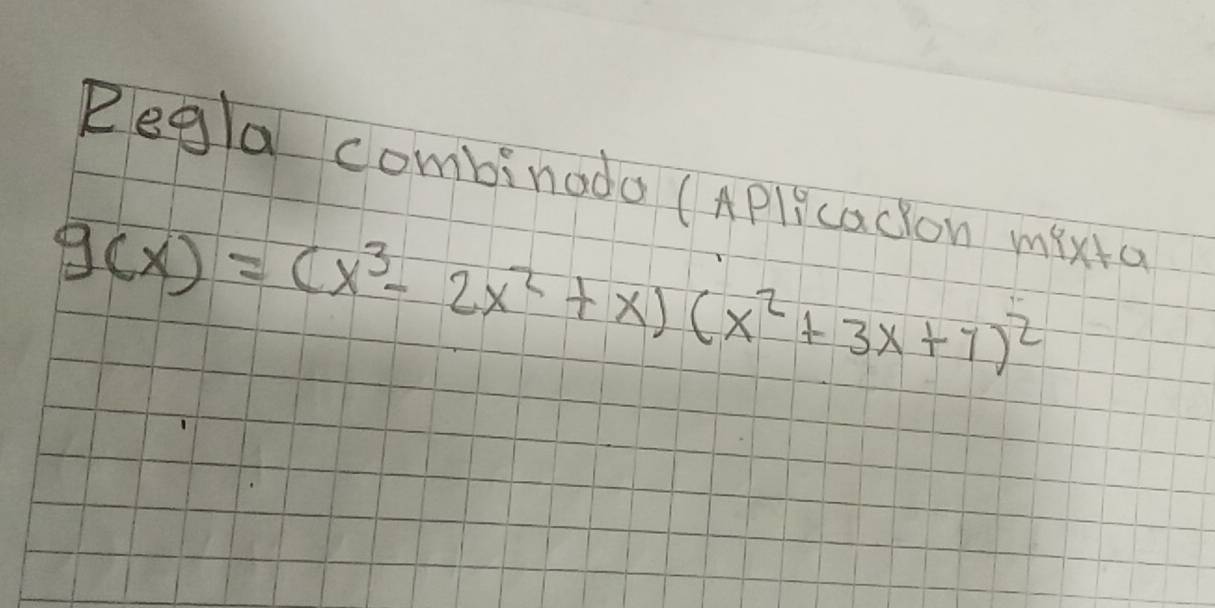 Regla combinada (APlicacion mixta
g(x) = (x³ - 2x² + x) (x² + 3x + 1)²